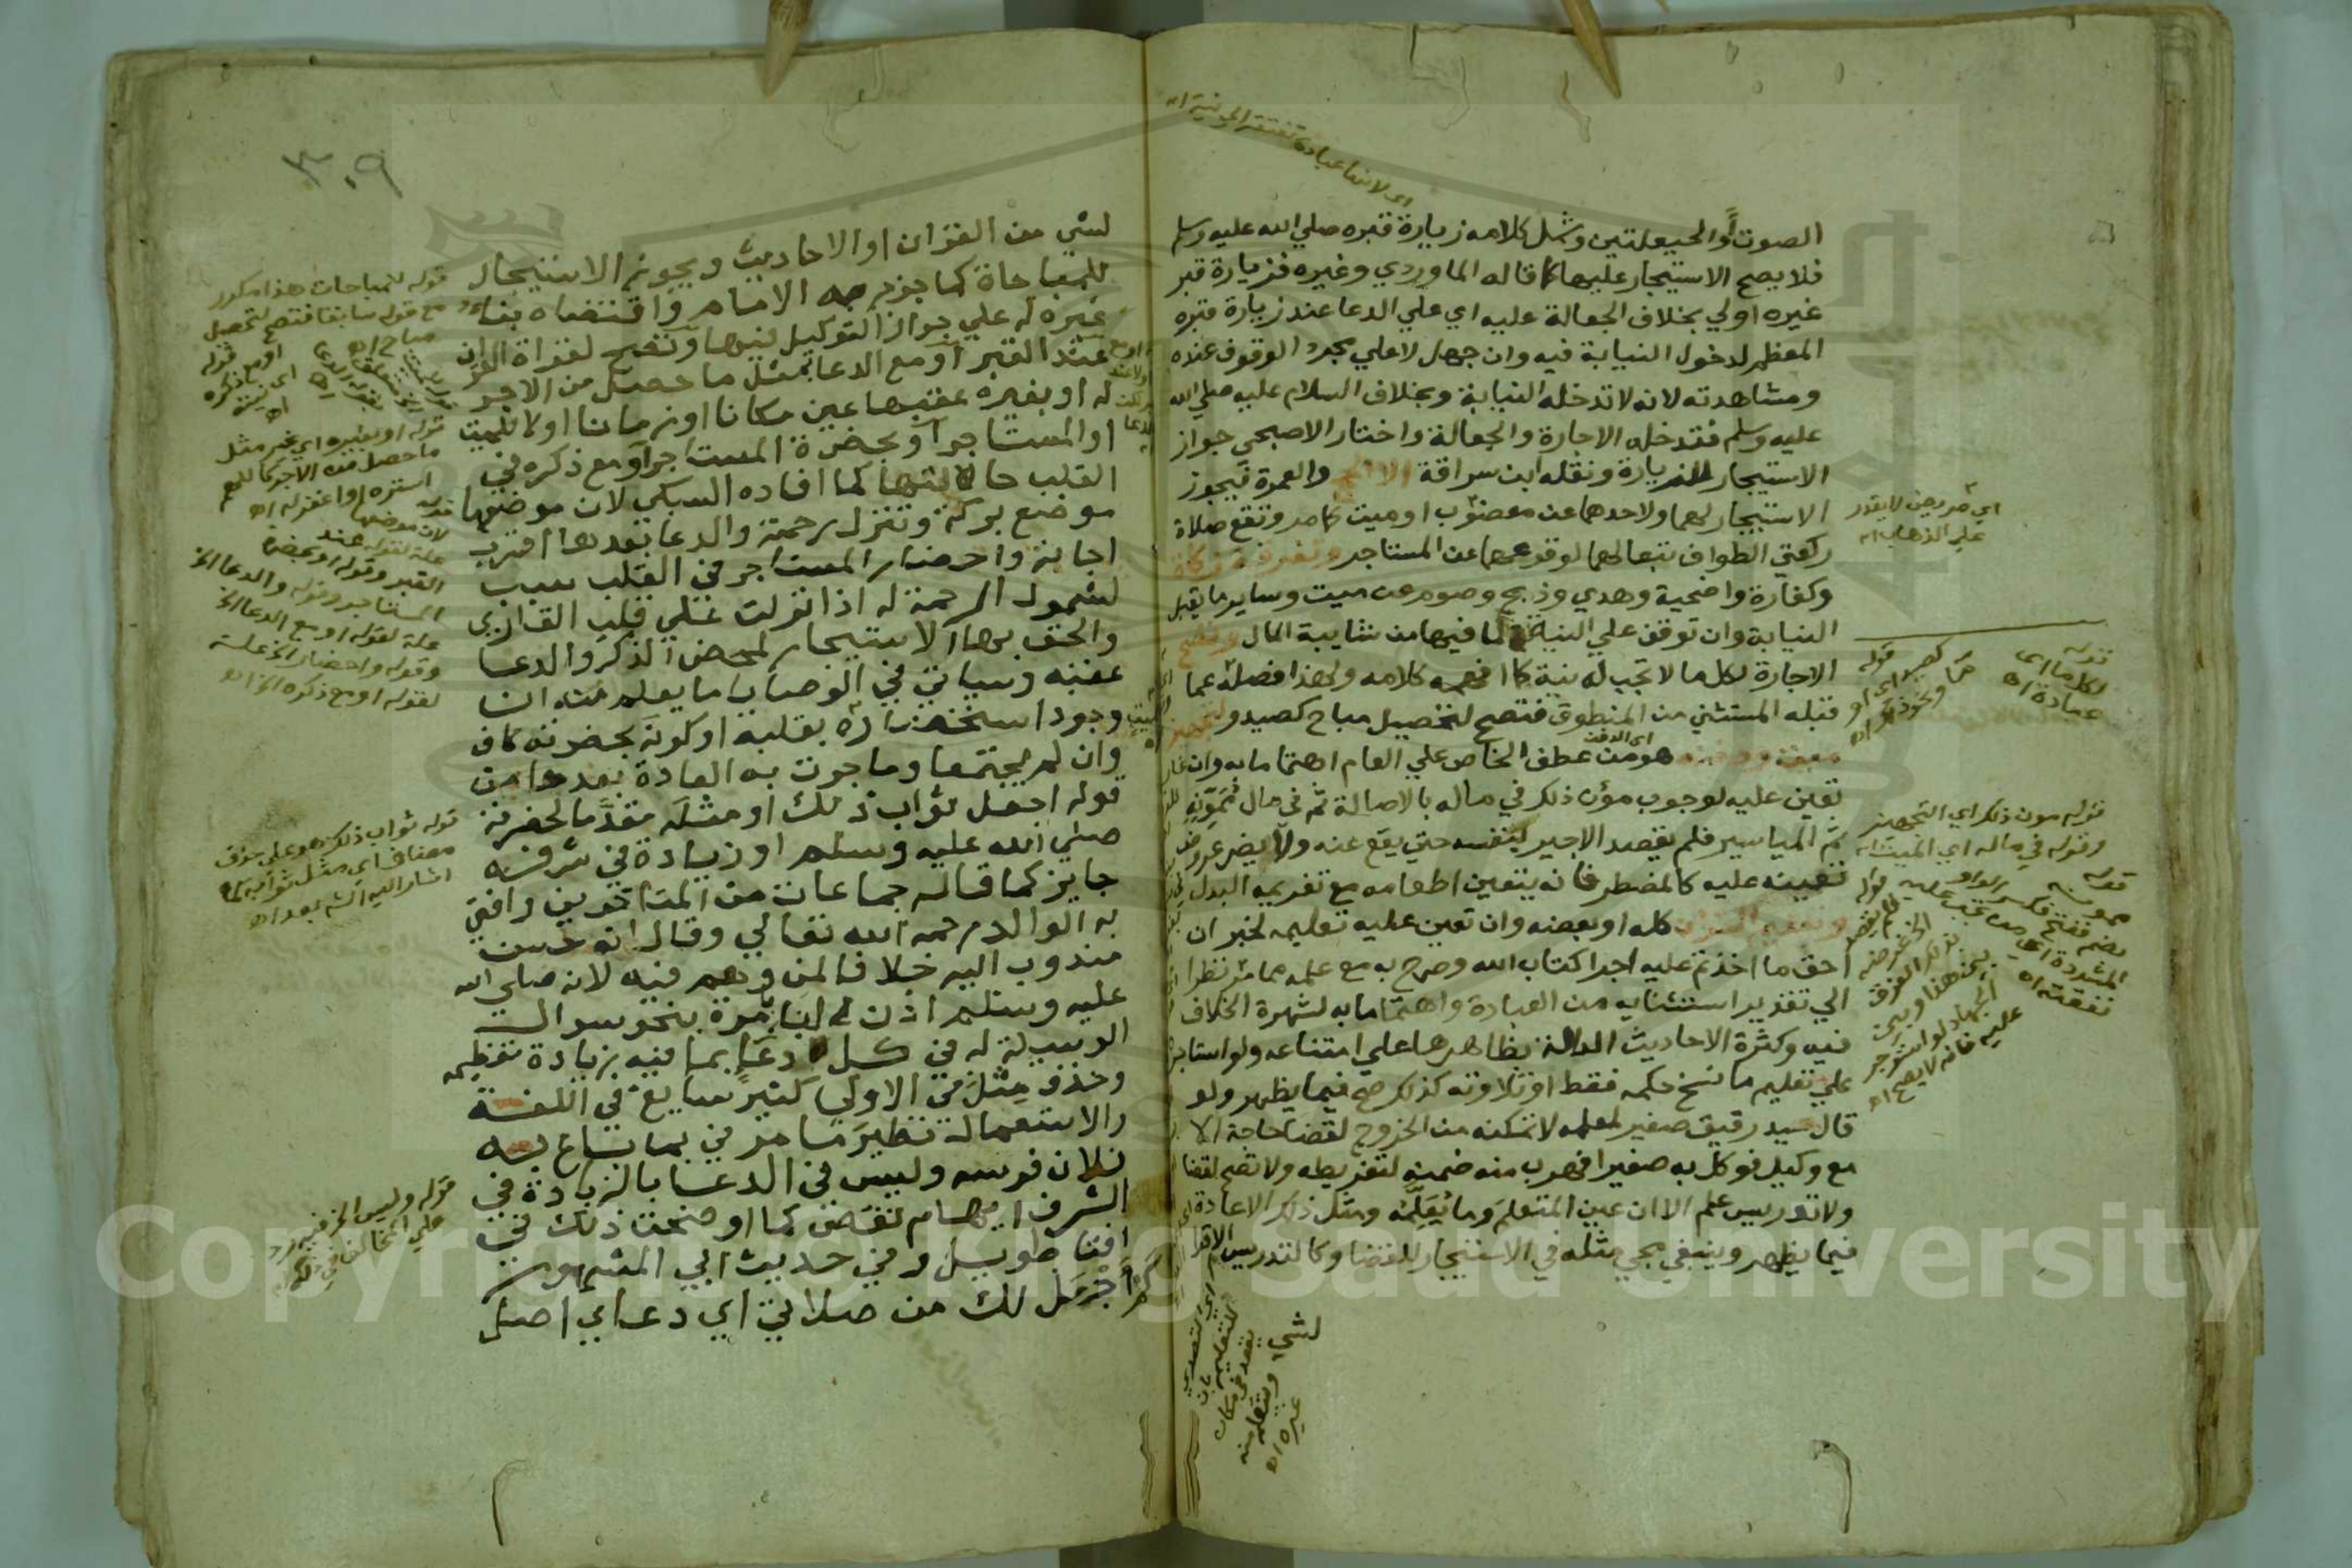 الصوت أو الحيعلتين وشمل كلامه زيارة قبره صلي الله عليه وسلم
فلا يصح الاستيجار عليها كما قاله الماوردي وغيره فزيارة قبر
غيره اولي بخلاف الجعالة عليه اي علي الدعا عند زيارة قبره
المعظم لدخول النيابة فيه وان جهل لا علي مجرد الوقوف عنده
ومشاهدته لانه لا تدخله النيابة وبخلاف السلام عليه صلي الله
عليه وسلم فتدخله الاجارة والجعالة واختار الاصبحي جواز
الاستيجار للزيارة ونقله ابن سراقة الا الحج والعمرة فيجوز
الاستيجار لهما ولاحدهما عن معضوب او ميت كما مر وتقع صلاة
ركعتي الطواف تبعا لهما لوقوعهما عن المستاجر وتفرقة زكاة
وكفارة واضحية وهدي وذبح وصوم عن ميت وساير ما يقبل
النيابة وان توقف علي النية لما فيها من شايبة المال وتصح
الاجارة لكل ما لا تجب له نية كما افهمه كلامه ولهذا فصله عما
قبله المستثني من المنطوق فتصح لتحصيل مباح كصيد ولتجهيز
ميت ودفنه هو من عطف الخاص علي العام اهتماما به وان
تعين عليه لوجوب مؤن ذلك في ماله بالاصالة ثم في مال ممونه
ثم المياسير فلم يقصد الاجير لنفسه حتي يقع عنه ولا يضر عروض
تعيينه عليه كالمضطر فانه يتعين اطعامه مع تغريمه البدل
وتعليم القران كله او بعضه وان تعين عليه تعليمه لخبر ان
احق ما اخذتم عليه اجرا كتاب الله وصرح به مع علمه مما مر نظرا
الي تقدير استثنايه من العبادة واهتماما به لشهرة الخلاف
فيه وكثرة الاحاديث الدالة بظاهرها علي امتناعه ولو استاجره
علي تعليم ما نسخ حكمه فقط او تلاوته كذلك صح فيما يظهر ولو
قال سيد رقيق صغير لمعلمه لا تمكنه من الخروج لقضا حاجة الا
مع وكيل فوكل به صغيرا فهرب منه ضمنه لتفريطه ولا تصح لقضا
ولا تدريس علم الا ان عين المتعلم وما يعلمه ومثل ذلك الاعادة
فيما يظهر وينبغي مجي مثله في الاستيجار للقضا وكالتدريس الاقرا
لشي
اي لانها عبادة تفتقر الي نية اه
اي مريض لا يقدر
علي الذهاب اه
قوله
لكل ما اي
عبادة اه
اي الدفن
قوله مون ذلك اي التجهيز
وقوله في ماله اي الميت اه
٣٠٩
لشي من القران او الاحاديث ويجوز الاستيجار
للمباحاة كما جزم به الامام واقتضاه بناء
غيره له علي جواز التوكيل فيها وتصح لقراة القران
عند القبر أو مع الدعا بمثل ما حصل من الاجر
له او بغيره عقبها عين مكانا او زمانا او لا للميت
او المستاجر أو بحضرة المستاجر أو مع ذكره في
القلب حالتها كما افاده السبكي لان موضعها
موضع بركة وتنزل رحمة والدعا بعدها اقرب
اجابة واحضار المستاجر في القلب سبب
لشمول الرحمة له اذا نزلت علي قلب القاري
والحق بها الاستيجار لمحض الذكر والدعا
عقبه وسياتي في الوصايا ما يعلم منه ان
وجود استحضاره بقلبه او كونه بحضرته كاف
وان لم يجتمعا وما جرت به العادة بعدها من
قوله اجعل ثواب ذلك او مثله مقدما لحضرته
صلي الله عليه وسلم او زيادة في شرفه
جايز كما قاله جماعات من المتاخرين وافتي
به الوالد رحمه الله تعالي وقال انه حسن
مندوب اليه خلافا لمن وهم فيه لانه صلي الله
عليه وسلم اذن لنا بامره بنحو سوال
الوسيلة له في كل دعا بما فيه زيادة تعظيمه
وحذف مثل في الاولي كثير سايغ في اللغة
والاستعمال نظير ما مر في بما باع به
فلان فرسه وليس في الدعا بالزيادة في
الشرف ايهام نقص كما اوضحت ذلك في
افتا طويل وفي حديث ابي المشهور
كم أجعل لك من صلاتي اي دعاي اصل
قوله للمباحات هذا مكرر
مع قوله سابقا فتصح لتحصيل
مباح اه
قوله او بغيره اي غير مثل
ما حصل من الاجر كاللهم
استره او اغفر له اه
علة لقوله عند
القبر وقوله او بحضرة
المستاجر وقوله والدعا الخ
علة لقوله او مع الدعا الخ
وقوله واحضار الخ علة
لقوله او مع ذكره الخ اه
قوله ثواب ذلك هو علي حذف
مضاف اي مثل ثوابه كما
اشار اليه الش بعد اه
قوله وليس الخ فيه رد
Copyright © King Saud University